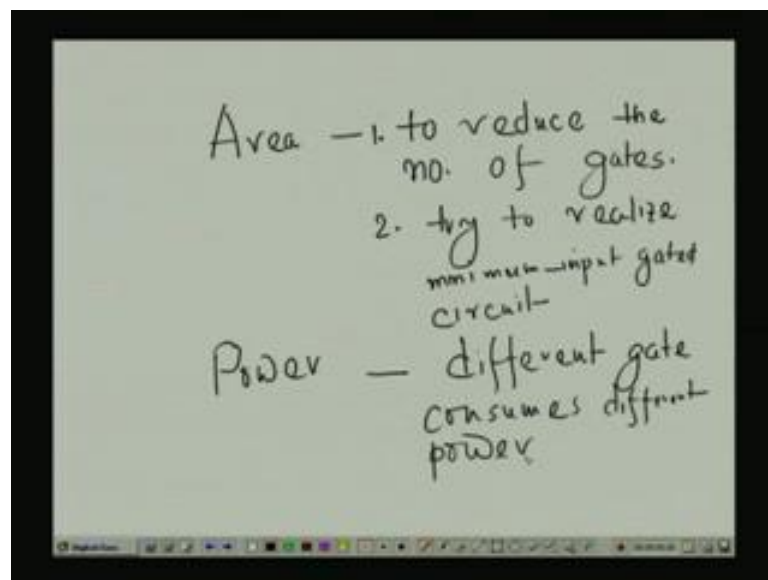 Area — 1. to reduce the
no. of gates.
2. try to realize
minimum-input gated
circuit
Power — different gate
consumes different
power.